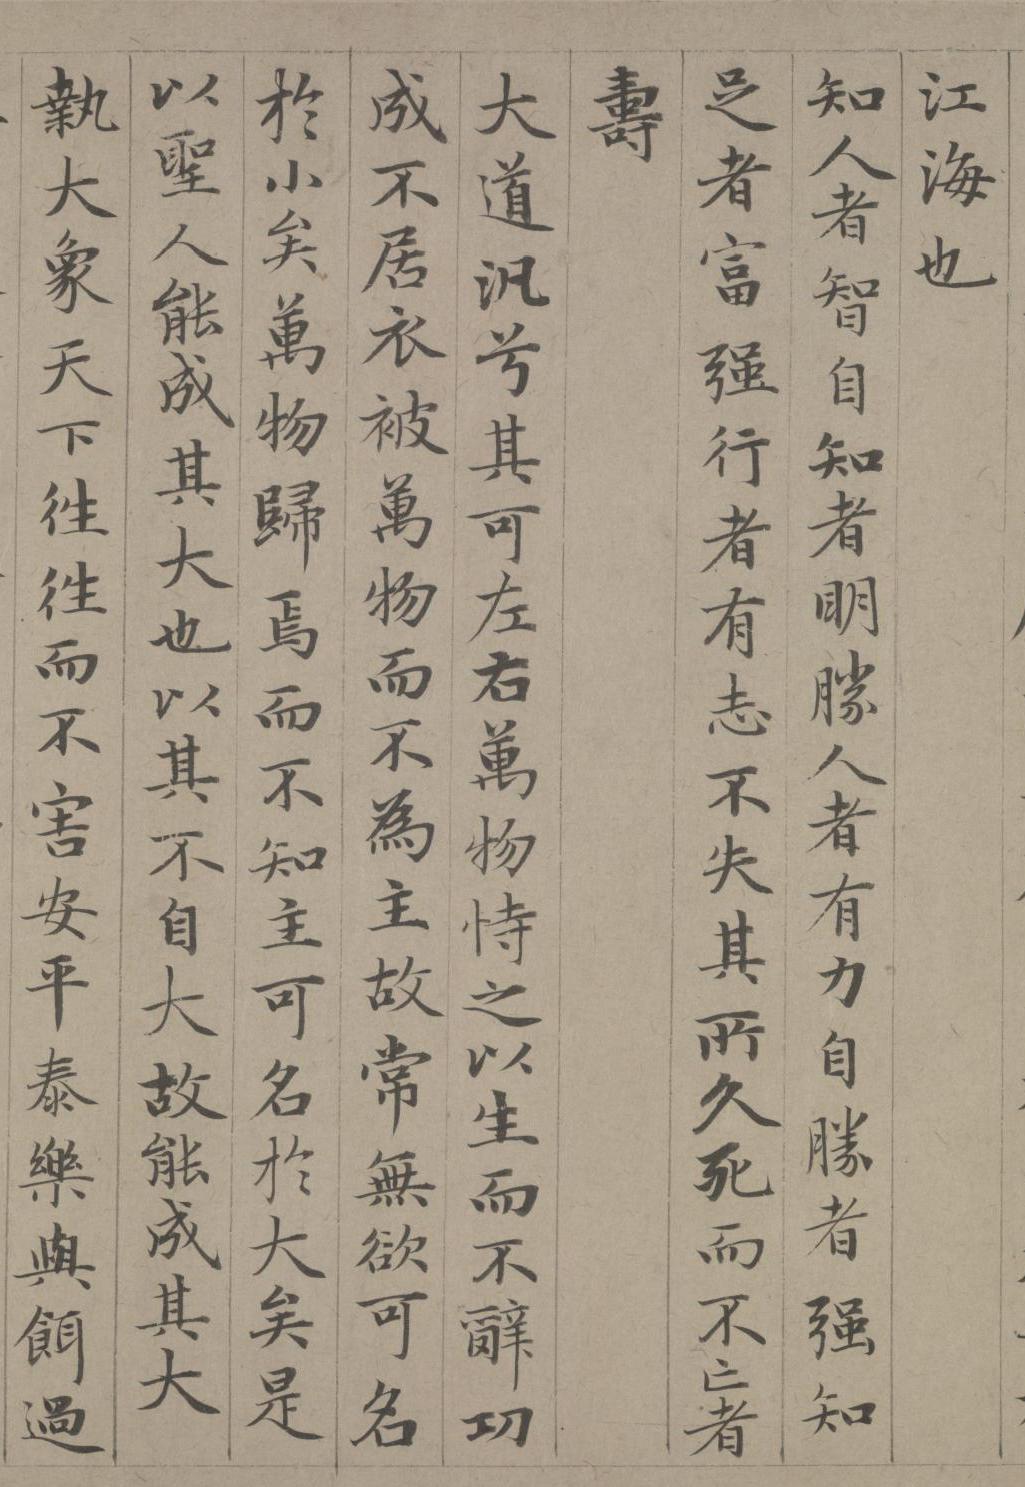 江海也
知人者智自知者明勝人者有力自勝者强知
足者富强行者有志不失其所久死而不亡者
壽
大道汎兮其可左右萬物恃之以生而不辭功
成不居衣被萬物而不為主故常無欲可名
於小矣萬物歸焉而不知主可名於大矣是
以聖人能成其大也以其不自大故能成其大
執大象天下往往而不害安平泰樂與餌過